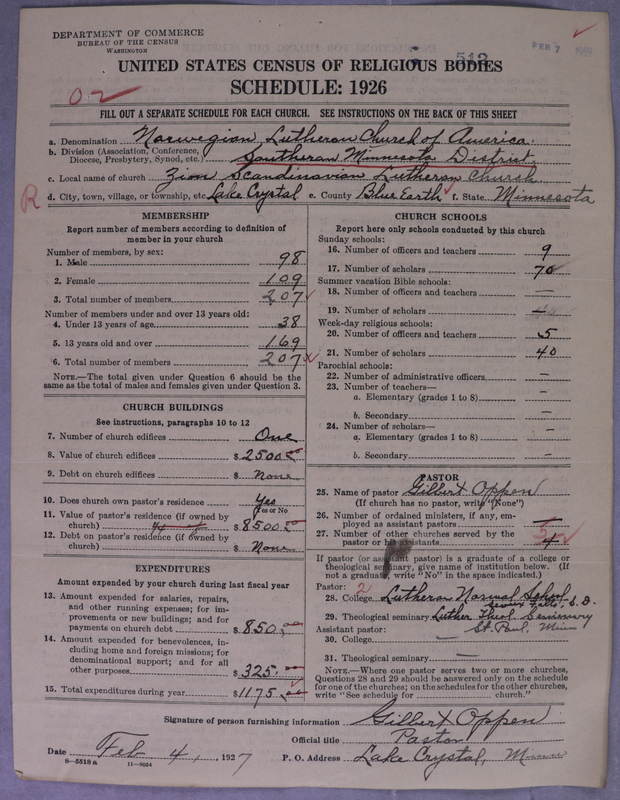 DEPARTMENT OF COMMERCE
BUREAU OF THE CENSUS
WASHINGTON
512
FEB 7 1927
UNITED STATES CENSUS OF RELIGIOUS BODIES
SCHEDULE: 1926
02
FILL OUT A SEPARATE SCHEDULE FOR EACH CHURCH. SEE INSTRUCTIONS ON THE BACK OF THIS SHEET
a. Denomination Norwegian Lutheran Church of America.
b. Division (Association, Conference, Diocese, Presbytery, Synod, etc.) Southern Minnesota District
c. Local name of church Zion Scandinavian Lutheran Church
R
d. City, town, village, or township, etc. Lake Crystal e. County Blue Earth f. State Minnesota
MEMBERSHIP
Report number of members according to definition of
member in your church
Number of members, by sex:
1. Male 98
2. Female 109
3. Total number of members 207
Number of members under and over 13 years old:
4. Under 13 years of age 38
5. 13 years old and over 169
6. Total number of members 207
NOTE.—The total given under Question 6 should be the
same as the total of males and females given under Question 3.
CHURCH BUILDINGS
See instructions, paragraphs 10 to 12
7. Number of church edifices One
8. Value of church edifices $ 2500.00
9. Debt on church edifices $ None
10. Does church own pastor's residence Yes
Yes or No
11. Value of pastor's residence (if owned by
church) $ 8500.00
12. Debt on pastor's residence (if owned by
church) $ None
EXPENDITURES
Amount expended by your church during last fiscal year
13. Amount expended for salaries, repairs,
and other running expenses; for im-
provements or new buildings; and for
payments on church debt $ 850.00
14. Amount expended for benevolences, in-
cluding home and foreign missions; for
denominational support; and for all
other purposes $ 325.00
15. Total expenditures during year $ 1175.00
CHURCH SCHOOLS
Report here only schools conducted by this church
Sunday schools:
16. Number of officers and teachers 9
17. Number of scholars 70
Summer vacation Bible schools:
18. Number of officers and teachers —
19. Number of scholars 40
Week-day religious schools:
20. Number of officers and teachers 5
21. Number of scholars 40
Parochial schools:
22. Number of administrative officers —
23. Number of teachers—
a. Elementary (grades 1 to 8) —
b. Secondary —
24. Number of scholars—
a. Elementary (grades 1 to 8) —
b. Secondary —
PASTOR
25. Name of pastor Gilbert Oppen
(If church has no pastor, write "None")
26. Number of ordained ministers, if any, em-
ployed as assistant pastors —
27. Number of other churches served by the
pastor or his assistants 4
If pastor (or assistant pastor) is a graduate of a college or
theological seminary, give name of institution below. (If
not a graduate, write "No" in the space indicated.)
Pastor: 2
28. College Lutheran Normal School
Sioux Falls, S. D.
29. Theological seminary Luther Theol. Seminary
Assistant pastor: St. Paul, Minn
30. College —
31. Theological seminary —
NOTE.—Where one pastor serves two or more churches,
Questions 28 and 29 should be answered only on the schedule
for one of the churches; on the schedules for the other churches,
write "See schedule for church."
Signature of person furnishing information Gilbert Oppen
Official title Pastor
Date Feb 4, 1927 P. O. Address Lake Crystal, Minn
8—5518a 11—9054